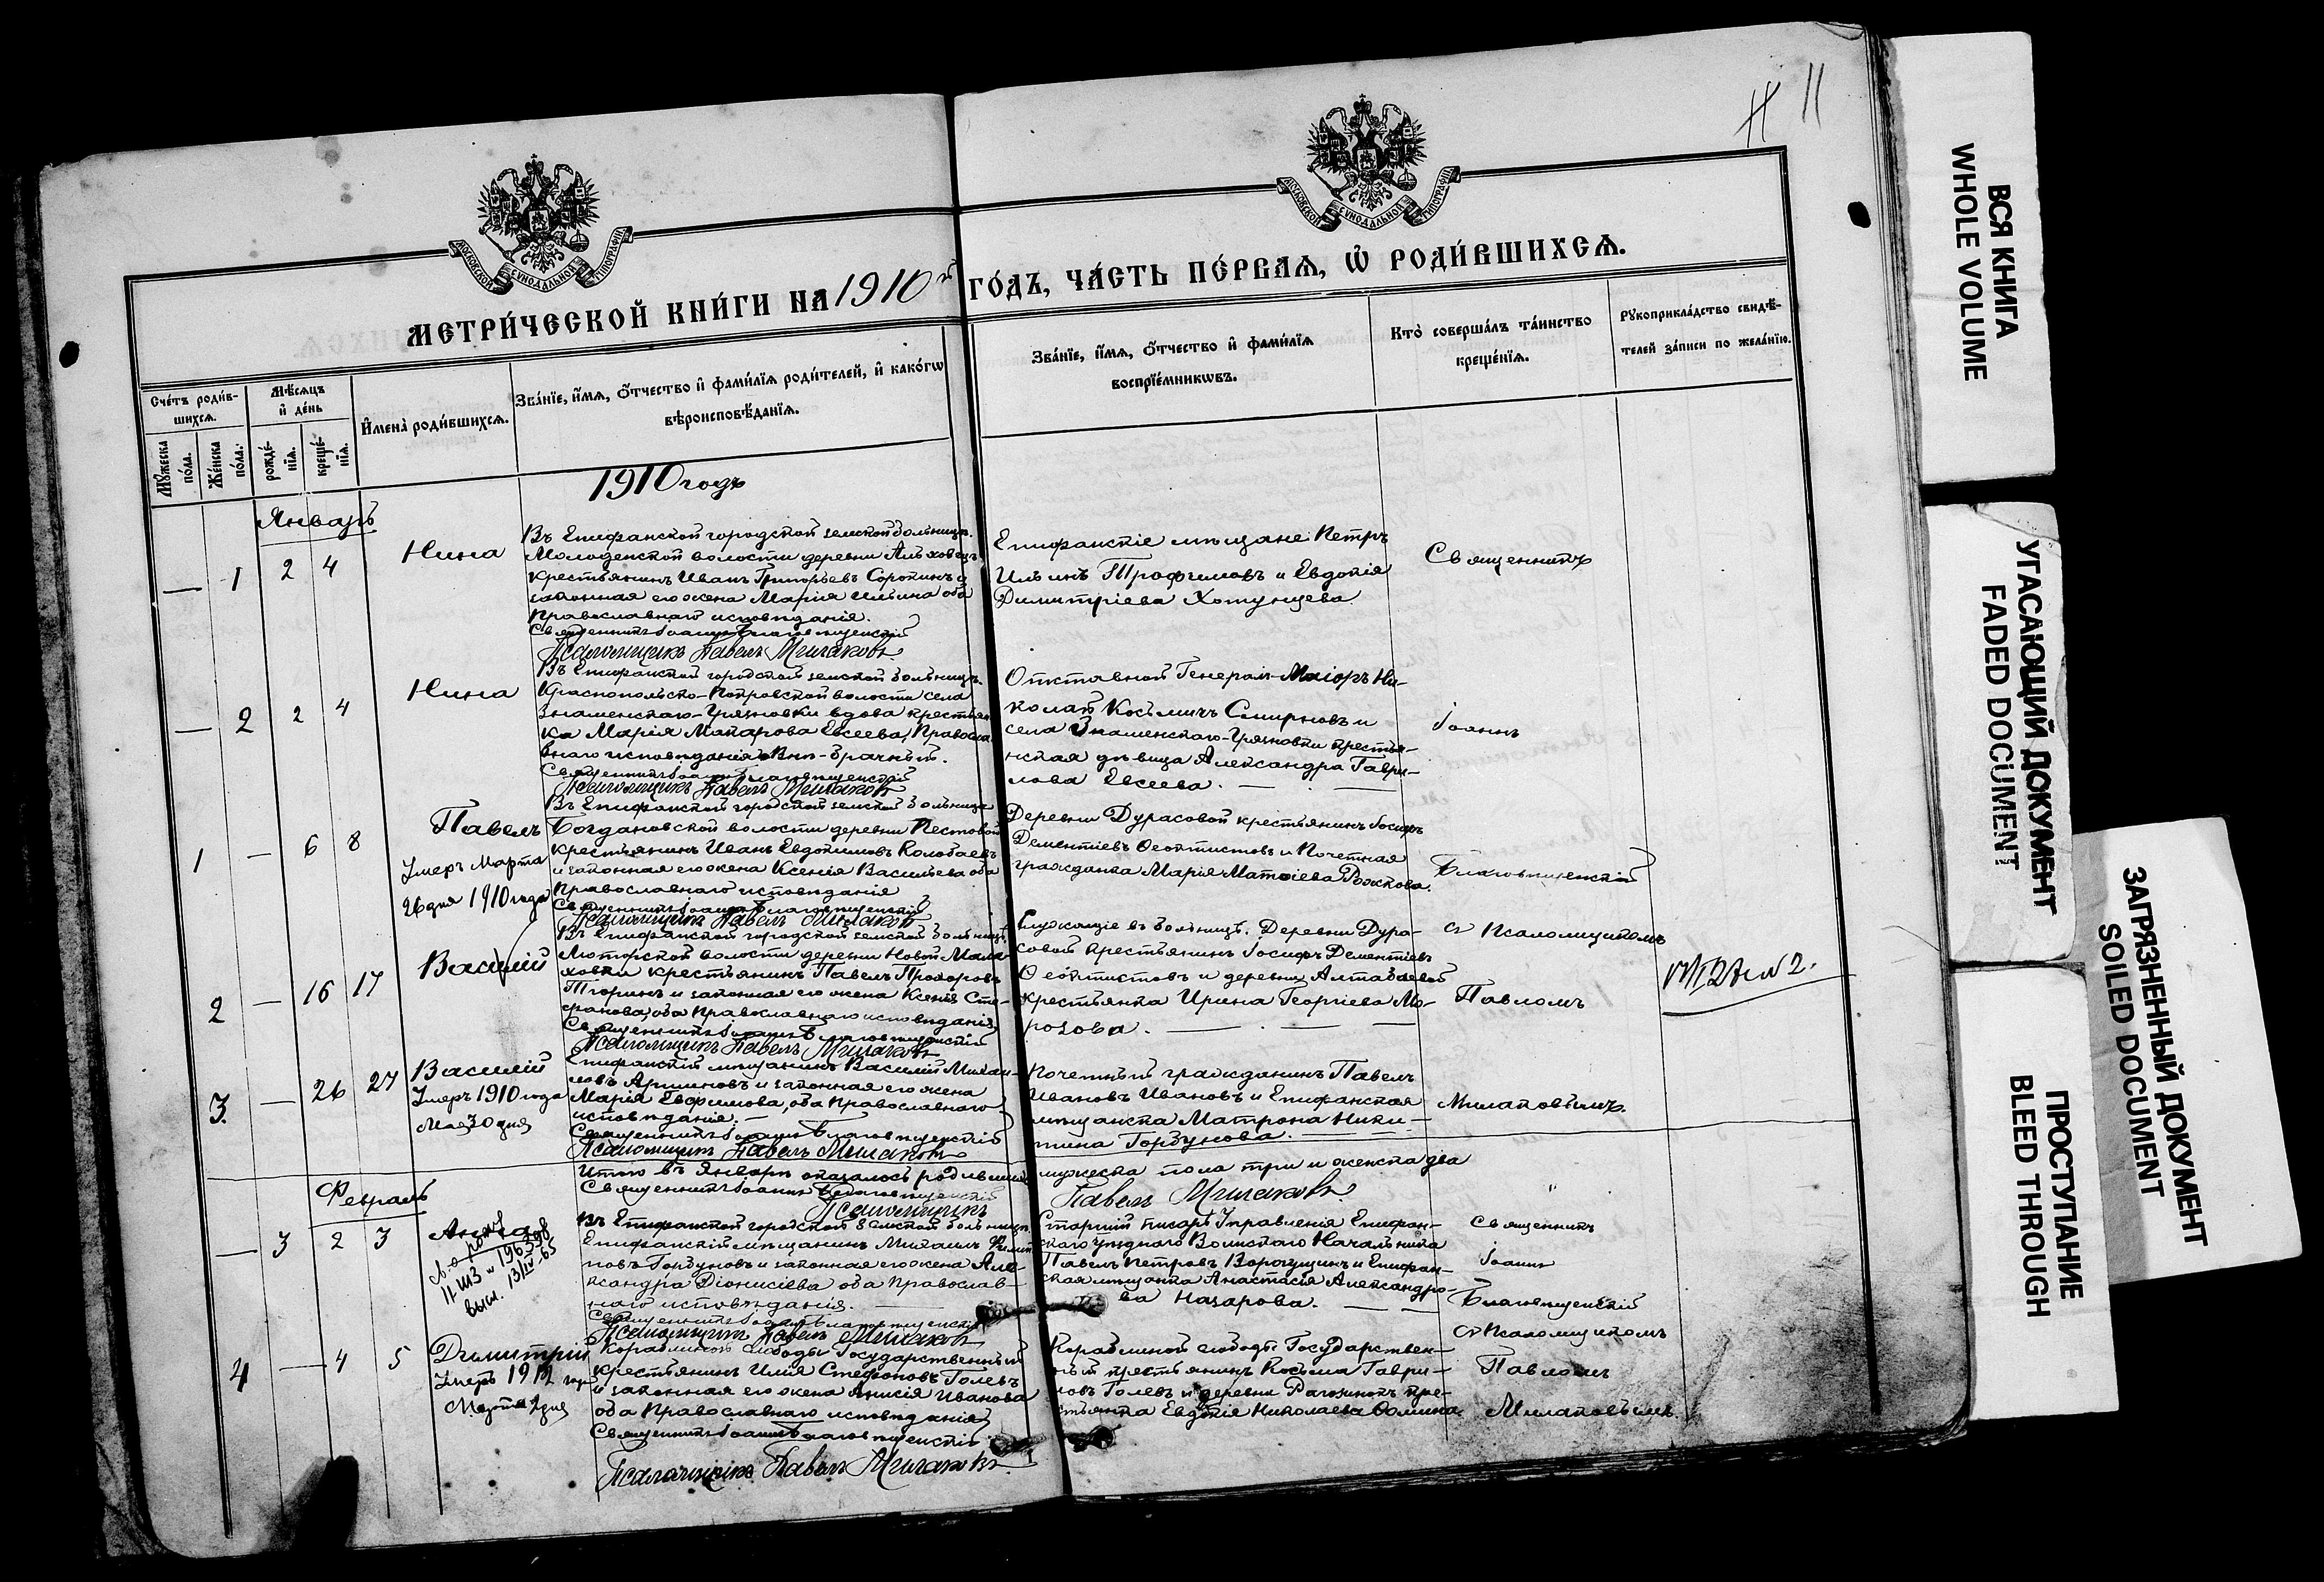 11
МОСКОВСКОЙ СѴНОДАЛЬНОЙ ТИПОГРАФІИ
МОСКОВСКОЙ СѴНОДАЛЬНОЙ ТИПОГРАФІИ
МЕТРИ́ЧЕСКОЙ КНИ́ГИ НА 1910й ГО́ДЪ, ЧА́СТЬ ПЕ́РВАѦ, Ѡ҆ РОДИ́ВШИХСѦ.
Сче́тъ роди́в-
шихсѧ.
Мꙋ́жеска
по́ла.
Же́нска
по́ла.
Мѣ́сѧцъ
и҆ де́нь
рожде́-
нїѧ.
креще́-
нїѧ.
И҆мена̀ роди́вшихсѧ.
Зва́нїе, и҆́мѧ, ѻ҆́тчество и҆ фами́лїѧ роди́телей, и҆ како́гѡ
вѣроисповѣ́данїѧ.
Зва́нїе, и҆́мѧ, ѻ҆́тчество и҆ фами́лїѧ
воспрїе́мникѡвъ.
Кто̀ соверша́лъ та́инство
креще́нїѧ.
Рꙋкоприкла́дство свидѣ́-
телей за́писи по жела́нїю.
1910 годъ
Январь
— 1 2 4
Нина
Въ Епифанской городской земской больницѣ.
Молоденской волости деревни Альховецъ
крестьянинъ Иванъ Григорьевъ Сорокинъ и
законная его жена Марія Ильина оба
Православнаго исповѣданія.
Священникъ Іоаннъ Благовѣщенскій
Псаломщикъ Павелъ Милаковъ.
Епифанскіе мѣщане: Петръ
Ильинъ Трофимовъ и Евдокія
Димитріева Хотунцева.
Священникъ
— 2 2 4
Нина
Въ Епифанской городской земской больницѣ.
Краснопольско-Покровской волости села
Знаменскаго-Грязновки вдова крестьян-
ка Марія Макарова Евсеева, Правосла-
внаго исповѣданія. Внѣ-брачный.
Священникъ Іоаннъ Благовѣщенскій
Псаломщикъ Павелъ Милаковъ
Отставной Генералъ-Маіоръ Ни-
колай Косьмичъ Смирновъ и
села Знаменскаго-Грязновки крестья-
нская дѣвица Александра Гаври-
лова Евсеева.
Іоаннъ
1 — 6 8
Павелъ
Умеръ Марта
26 дня 1910 года
Въ Епифанской городской земской больницѣ
Богдановской волости деревни Пестовой
крестьянинъ Иванъ Евдокимовъ Колобаевъ
и законная его жена Ксенія Васильева оба
Православнаго исповѣданія
Священникъ Іоаннъ Благовѣщенскій
Псаломщикъ Павелъ Милаковъ
Деревни Дурасовой крестьянинъ Іосифъ
Дементіевъ Ѳеоктистовъ и Почетная
гражданка Марія Матѳіева Рожкова.
Благовѣщенскій
2 — 16 17
Василій
Въ Епифанской городской земской больницѣ,
Люторской волости деревни Новой Мала-
ховки крестьянинъ Павелъ Прохоровъ
Тюринъ и законная его жена Ксенія Сте-
фанова, оба Православнаго исповѣданія
Священникъ Іоаннъ Благовѣщенскій
Псаломщикъ Павелъ Милаковъ
Служащіе въ больницѣ. Деревни Дура-
совой крестьянинъ Іосифъ Дементіевъ
Ѳеоктистовъ и деревни Алтабаевой
крестьянка Ирина Георгіева Мо-
розова.
съ Псаломщикомъ
Павломъ
3. — 26 27
Василій
Умеръ 1910 года
Мая 30 дня
Епифанскій мѣщанинъ Василій Михаи-
ловъ Аршиновъ и законная его жена
Марія Евфимова, оба Православнаго
исповѣданія.
Священникъ Іоаннъ Благовѣщенскій
Псаломщикъ Павелъ Милаковъ
Почетный гражданинъ Павелъ
Ивановъ Ивановъ и Епифанская
мѣщанка Матрона Ники-
тина Горбунова.
Милаковымъ.
Итого въ Январѣ оказалось родившихся мужеска пола три и женска два
Священникъ Іоаннъ Благовѣщенскій
Псаломщикъ Павелъ Милаковъ.
Февраль
— 3 2 3
Анна
высл. 13/IV-65
Въ Епифанской городской земской больницѣ
Епифанскій мѣщанинъ Михаилъ Филип-
повъ Горбуновъ и законная его жена Але-
ксандра Діонисіева оба Православ-
наго исповѣданія.
Священникъ Іоаннъ Благовѣщенскій
Псаломщикъ Павелъ Милаковъ
Старшій писарь Управленія Епифан-
скаго Уѣзднаго Воинскаго Начальника
Павелъ Петровъ Ворочущинъ и Епифан-
ская мѣщанка Анастасія Александро-
ва Назарова.
Священникъ
Іоаннъ
Благовѣщенскій
съ Псаломщикомъ
4 — 4 5
Димитрій
Умеръ 1912 года
Марта 2 дня
Кораблиной слободы Государственный
крестьянинъ Илія Стефановъ Голевъ
и законная его жена Анисія Иванова
оба Православнаго исповѣданія
Священникъ Іоаннъ Благовѣщенскій
Псаломщикъ Павелъ Милаковъ.
Кораблиной слободы Государствен-
ный крестьянинъ Косьма Гаври-
ловъ Голевъ и деревни Рагозинокъ кре-
стьянка Евдокія Николаева Ѳомина.
Павломъ
Милаковымъ.
ВСЯ КНИГА
WHOLE VOLUME
УГАСАЮЩИЙ ДОКУМЕНТ
FADED DOCUMENT
ЗАГРЯЗНЕННЫЙ ДОКУМЕНТ
SOILED DOCUMENT
ПРОСТУПАНИЕ
BLEED THROUGH